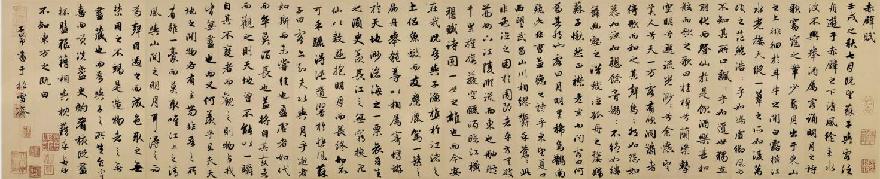 赤壁賦
壬戌之秋七月既望蘇子與客泛
舟遊于赤壁之下清風徐來水
波不興舉酒屬客誦明月之詩
歌窈窕之章少焉月出于東山
之上徘徊於斗牛之間白露橫江
水光接天縱一葦之所如凌萬
頃之茫然浩浩乎如馮虛御風而
不知其所止飄飄乎如遺世獨立
羽化而登仙於是飲酒樂甚扣
舷而歌之歌曰桂棹兮蘭槳擊
空明兮泝流光渺渺兮余懷望
美人兮天一方客有吹洞簫者
倚歌而和之其聲嗚嗚然如怨如
慕如泣如訴餘音嫋嫋不絕如縷
舞幽壑之潛蛟泣孤舟之嫠婦
蘇子愀然正襟危坐而問客曰何
為其然也客曰月明星稀烏鵲南
飛此非曹孟德之詩乎東望夏口
西望武昌山川相繆鬱乎蒼蒼此
非孟德之困於周郎者乎方其破
荊州下江陵順流而東也舳艫
千里旌旗蔽空釃酒臨江橫
槊賦詩固一世之雄也而今安
在哉況吾與子漁樵於江渚之
上侶魚蝦而友麋鹿駕一葉之
扁舟舉匏樽以相屬寄蜉蝣
於天地渺滄海之一粟哀吾生
之須臾羨長江之無窮挾飛
仙以遨遊抱明月而長終知不
可乎驟得託遺響於悲風蘇
子曰客亦知夫水與月乎逝者
如斯而未嘗往也盈虛者如代
而卒莫消長也蓋將自其變者
而觀之則天地曾不能以一瞬
自其不變者而觀之則物與我
皆無盡也而又何羨乎且夫天
地之間物各有主苟非吾之所
有雖一毫而莫取惟江上之清
風與山間之明月耳得之而
為聲目遇之而成色取之無
禁用之不竭是造物者之無
盡藏也而吾與子之所共食
客喜而笑洗盞更酌肴核既盡
杯盤狼籍相與枕藉乎舟中
不知東方之既白
子昂書于松雪齋